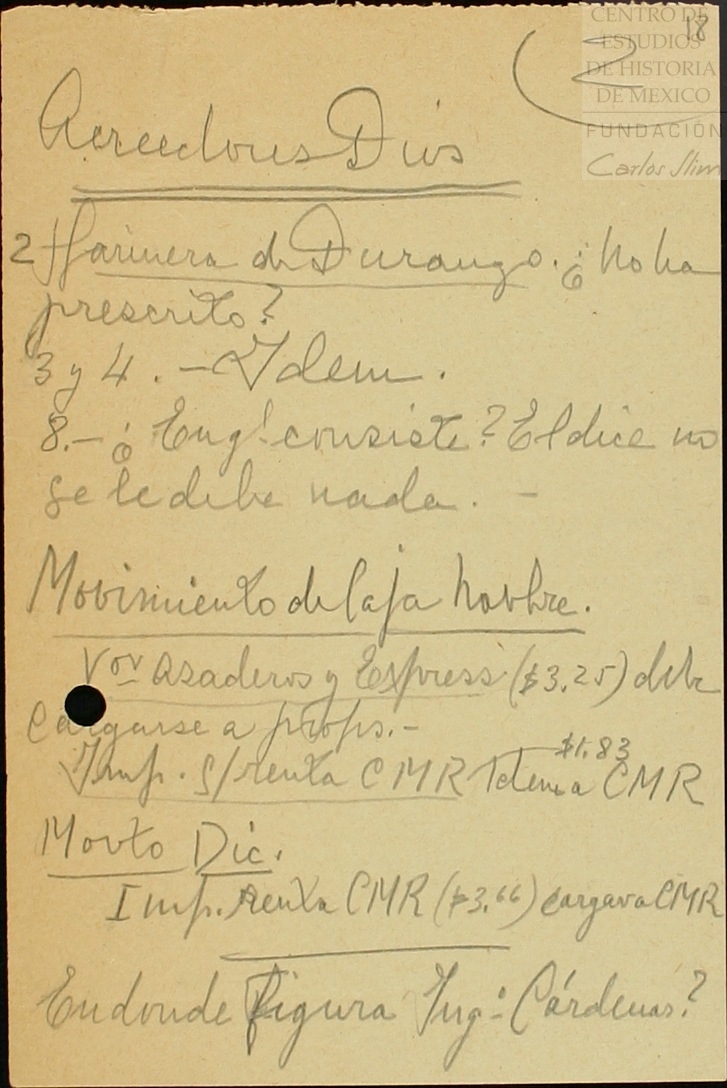 CENTRO DE
ESTUDIOS
DE HISTORIA
DE MEXICO
FUNDACIÓN
Carlos Slim
18
2
Acreedores Divs
2 Harinera de Durango. ¿No ha
prescrito?
3 y 4. - Idem.
8.- ¿ Eng! consiste? El dice no
se le debe nada. -
Movimiento de Caja Novbre.
Vor asaderos y Express ($3.25) debe
cargarse a props.-
$1.83
Imp. s/renta CMR Idem a CMR
Movto Dic.
Imp. Renta CMR ($3.66) cargar a CMR
En donde figura Ing.o Cárdenas?